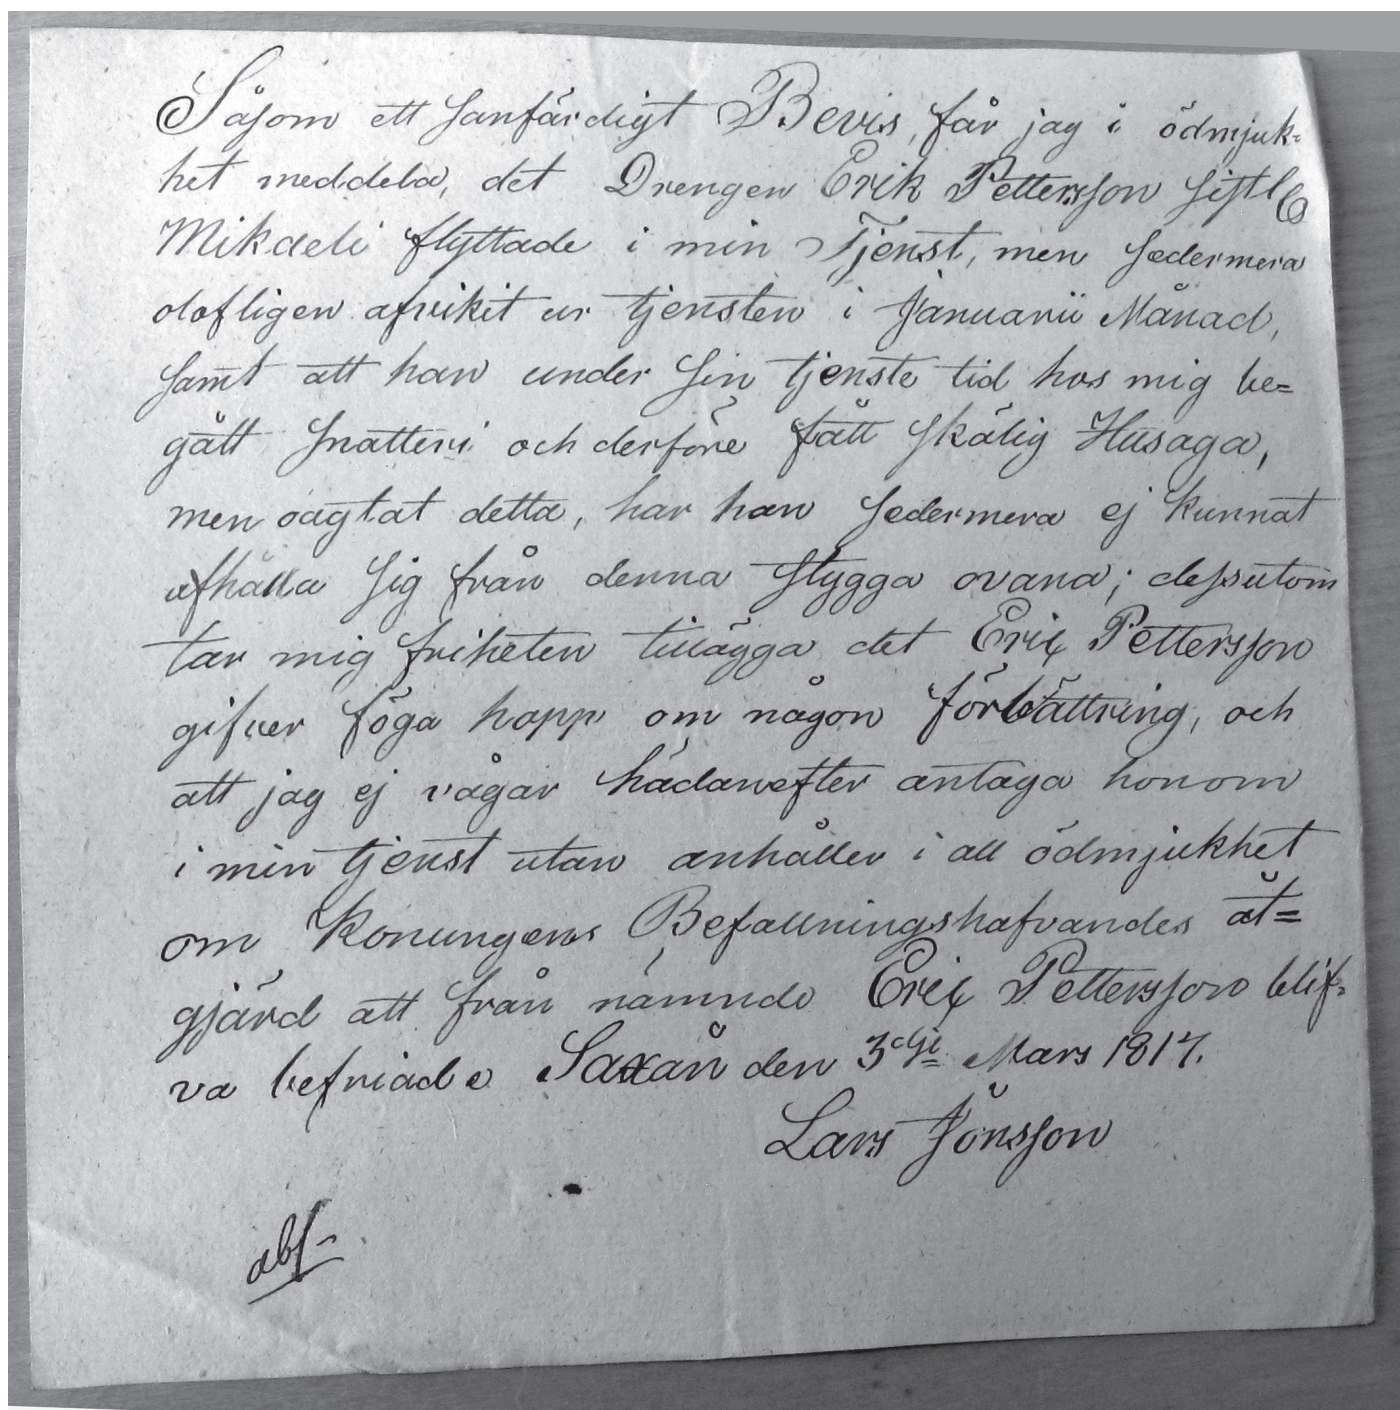 Såsom ett sanfärdigt Bevis, får jag i ödmjuk-
het meddela, det Drengen Erik Pettersson sistl
Mikaeli flyttade i min Tjenst, men sedermera
olofligen afvikit ur tjensten i Januarii Månad,
samt att han under sin tjenste tid hos mig be=
gått snatteri och derföre fått skälig Husaga,
men oagtat detta, har han sedermera ej kunnat
afhålla sig från denna stygga ovana; dessutom
tar mig friheten tillägga det Eric Pettersson
gifver föga hopp om någon förbättring, och
att jag ej vågar hädanefter antaga honom
i min tjenst utan anhåller i all ödmjukhet
om Konungens Befallningshafvandes åt=
gjärd att från nämnde Eric Pettersson blif-
va befriade Saxån den 3dje Mars 1817.
Lars Jönsson